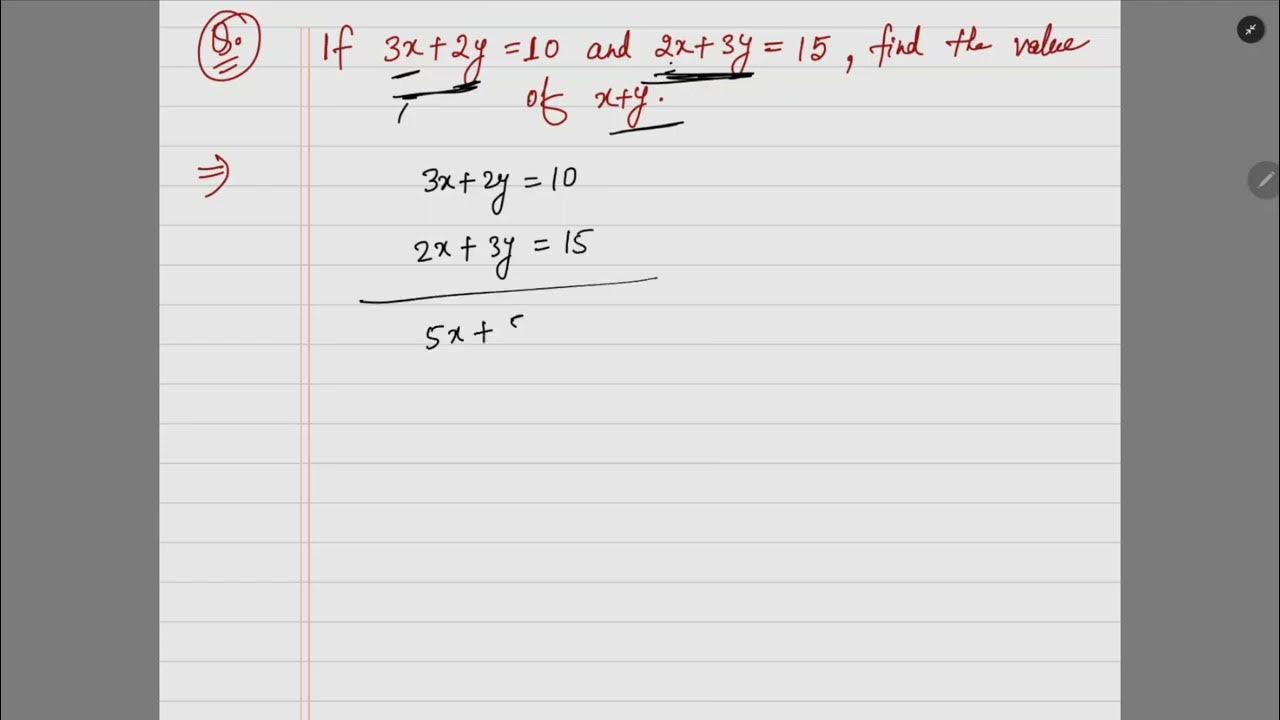 Q. If 3x+2y=10 and 2x+3y=15, find the value
of x+y.
⇒ 3x+2y=10
2x+3y=15
5x+